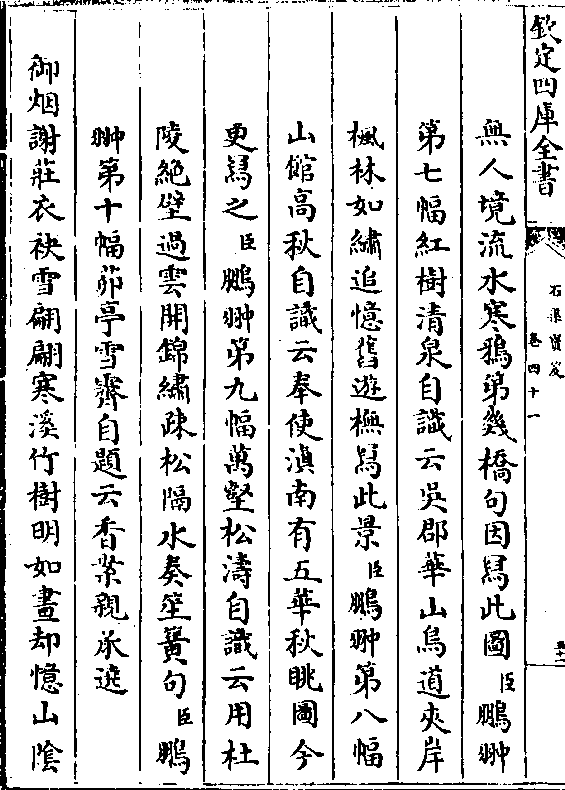 欽定四庫全書
石渠寶笈
卷四十一
無人境流水寒鴉第幾橋句因寫此圖臣鵬翀
第七幅紅樹清泉自識云吳郡華山鳥道夾岸
楓林如繡追憶舊遊橅寫此景臣鵬翀第八幅
山館高秋自識云奉使滇南有五華秋眺圖今
更寫之臣鵬翀第九幅萬壑松濤自識云用杜
陵絶壁過雲開錦繡疎松隔水奏笙簧句臣鵬
翀第十幅茆亭雪霽自題云香案親承遶
御烟謝莊衣袂雪翩翩寒溪竹樹明如畫却憶山陰